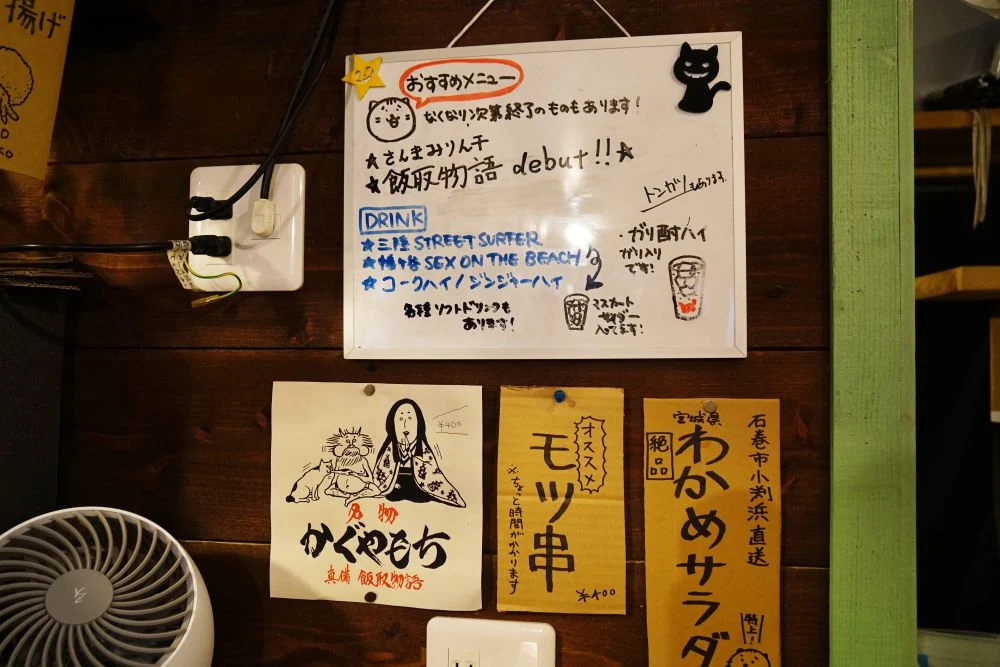 揚げ
おすすめメニュー
なくなり次第終了のものもあります!
★さんまみりん干
★飯取物語 debut!!★
トンガリもあります.
DRINK
★三陸 STREET SURFER
★幡ヶ谷 SEX ON THE BEACH
★コークハイ/ジンジャーハイ
各種ソフトドリンクも
あります!
マスカット
サイダー
入ってます!
・ガリ酎ハイ
ガリ入り
です!
¥400
名物
かぐやもち
真備 飯取物語
オススメ
モツ串
※ちょっと時間がかかります
¥400
石巻市小渕浜直送
宮城県
絶品
わかめサラダ
特上!